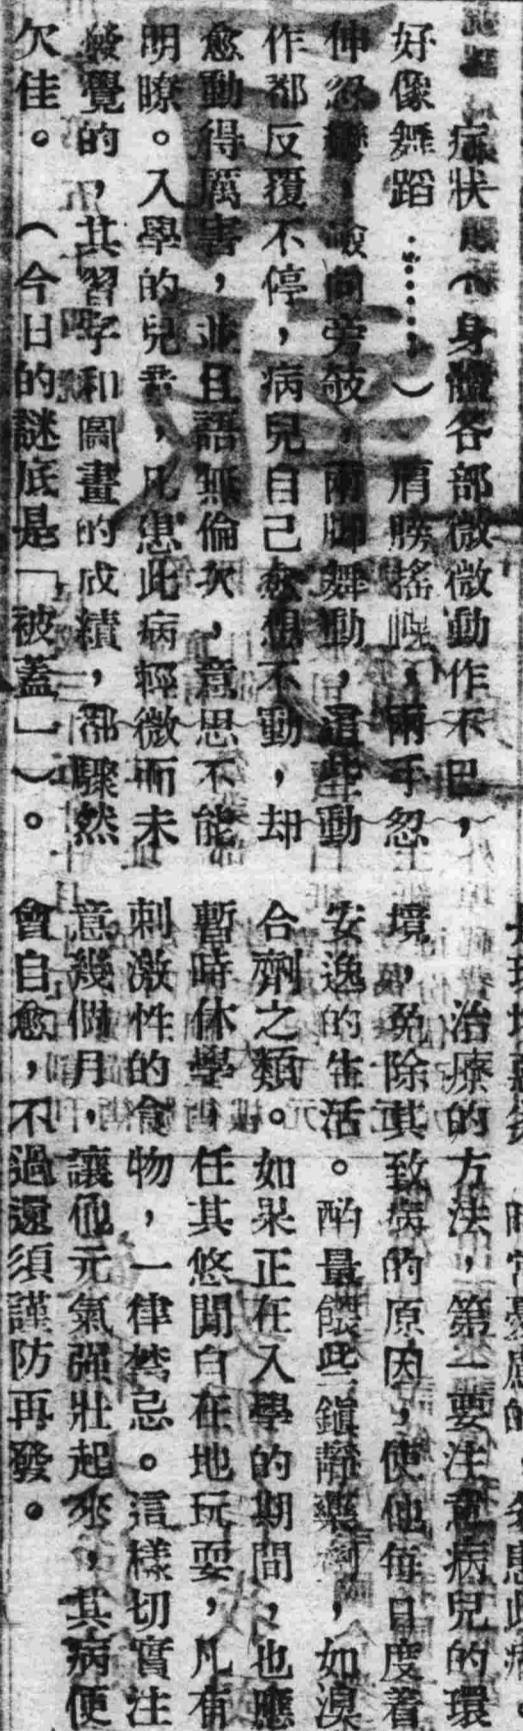 症狀（身體各部微微動作不已，
好像舞蹈……）肩膀搖幌，兩手忽
伸忽彎，或向旁敧，兩脚舞動，這些動
作都反覆不停，病兒自己愈想不動，却
愈動得厲害，並且語無倫次，意思不能
明瞭。入學的兒童，凡患此病輕微而未
發覺的，其習字和圖畫的成績，都驟然
欠佳。（今日的謎底是「被蓋」）。
治療的方法，第一要注意病兒的環
境，免除其致病的原因，使他每日度着
安逸的生活。酌量餵些鎮靜藥劑，如溴
合劑之類。如果正在入學的期間，也應
暫時休學，任其悠閒自在地玩耍，凡有
刺激性的食物，一律禁忌。這樣切實注
意幾個月，讓他元氣强壯起來，其病便
會自愈，不過還須謹防再發。